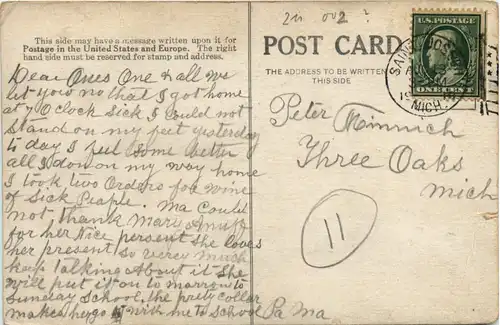 2n 002 ?
This side may have a message written upon it for
Postage in the United States and Europe. The right
hand side must be reserved for stamp and address.
POST CARD
THE ADDRESS TO BE WRITTEN
THIS SIDE
U.S. POSTAGE
ONE CENT
MICH.
Dear Ones One & all Ws
let you no that I got home
at 7 O Clock Sick I Could not
Stand on my feet yesterday
to day I feel Some better
all I do on my way home
I took two Orders for wine
of Sick People. Ma Could
not thank Mary
for her Nice persent She loves
her present Soverey Much
keep talking About it She
will put it on to marrow to
Sunday School, the prety collar
makes hur go with me to School Pa Ma
Peter
Three Oaks
Mich
11